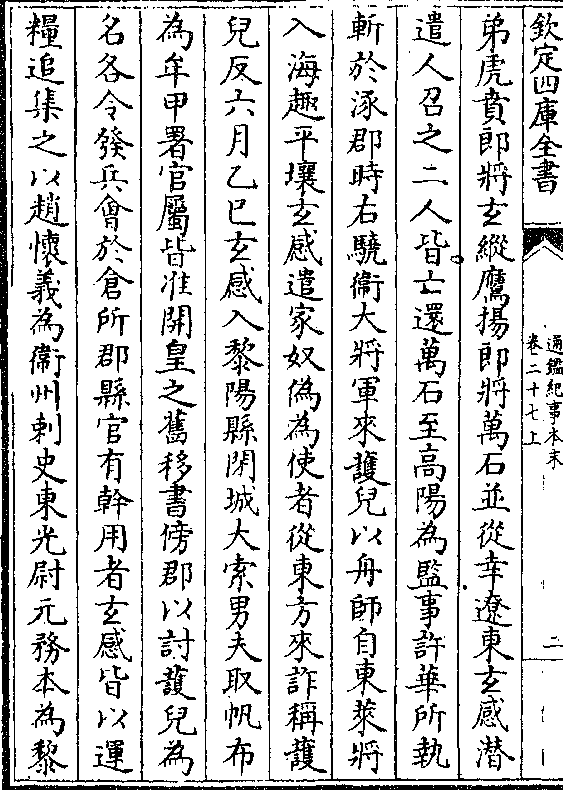 欽定四庫全書
通鑑紀事本末
卷二十七上
二
弟虎賁郎將玄縱鷹揚郎將萬石並從幸遼東玄感潜
遣人召之二人皆亡還萬石至高陽為監事許華所執
斬於涿郡時右驍衞大將軍來護兒以舟師自東萊將
入海趣平壤玄感遣家奴偽為使者從東方來詐稱護
兒反六月乙巳玄感入黎陽縣閉城大索男夫取帆布
為牟甲署官屬皆准開皇之舊移書傍郡以討護兒為
名各令發兵會於倉所郡縣官有幹用者玄感皆以運
糧追集之以趙懷義為衞州刺史東光尉元務本為黎